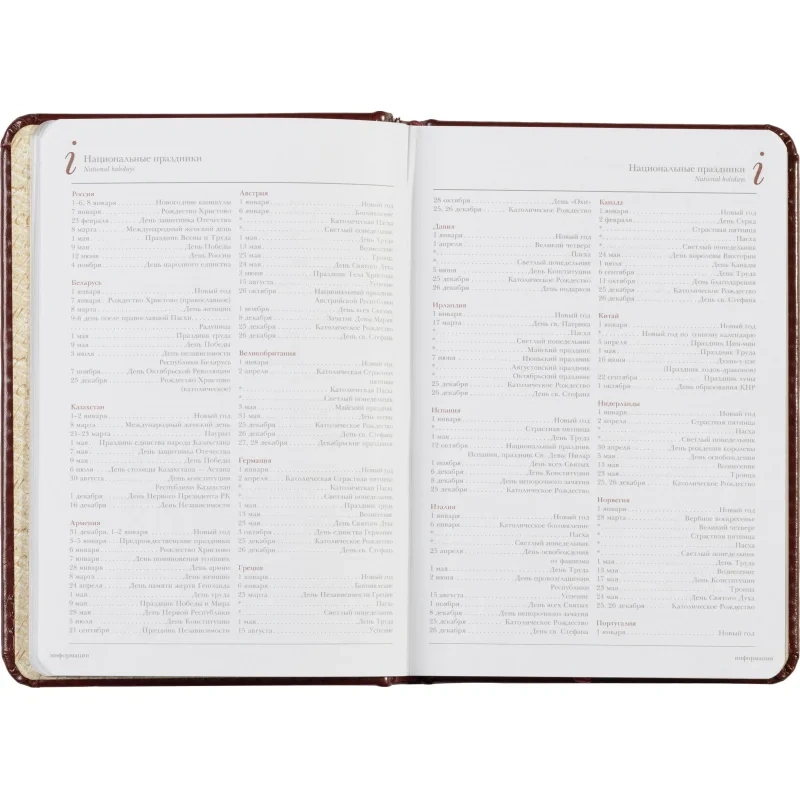 i Национальные праздники
National holidays
Россия
1-6, 8 января Новогодние каникулы
7 января Рождество Христово
23 февраля День защитника Отечества
8 марта Международный женский день
1 мая Праздник Весны и Труда
9 мая День Победы
12 июня День России
4 ноября День народного единства
Беларусь
1 января Новый год
7 января Рождество Христово (православное)
8 марта День женщин
9-й день после православной Пасхи
Радуница
1 мая Праздник труда
9 мая День Победы
3 июля День независимости
Республики Беларусь
7 ноября День Октябрьской Революции
25 декабря Рождество Христово
(католическое)
Казахстан
1-2 января Новый год
8 марта Международный женский день
21-23 марта Наурыз
1 мая Праздник единства народа Казахстана
7 мая День защитника Отечества
9 мая День Победы
6 июля День столицы Казахстана — Астана
30 августа День конституции
Республики Казахстан
1 декабря День Первого Президента РК
16 декабря День Независимости
Армения
31 декабря, 1-2 января Новый год
3-5 января Предрождественские праздники
6 января Рождество Христово
7 января День поминовения усопших
28 января День армии
8 марта День женщин
24 апреля День памяти жертв Геноцида
1 мая День труда
9 мая Праздник Победы и Мира
28 мая День Первой Республики
5 июля День Конституции
21 сентября Праздник Независимости
Австрия
1 января Новый год
6 января Богоявление
* Католическая Пасха
* Светлый понедельник
1 мая День Труда
13 мая Вознесение
23 мая Троица
24 мая День Святого Духа
3 июня Праздник Тела Христова
15 августа Успение
26 октября Национальный праздник
Австрийской Республики
1 ноября День всех Святых
8 декабря Зачатие Девы Марии
25 декабря Католическое Рождество
26 декабря День св. Стефана
Великобритания
1 января Новый год
2 апреля Католическая Страстная
пятница
* Католическая Пасха
* Светлый понедельник
3 мая Майский праздник
31 мая День весны
25 декабря Католическое Рождество
26 декабря День св. Стефана
27, 28 декабря Декабрьские праздники
Германия
1 января Новый год
2 апреля Католическая Страстная пятница
* Католическая Пасха
* Светлый понедельник
1 мая Праздник труда
13 мая Вознесение
23 мая День Святого Духа
3 октября День единства Германии
25 декабря Католическое Рождество
26 декабря День св. Стефана
Греция
1 января Новый год
6 января Богоявление
25 марта День Независимости Греции
* Пасха
* Светлый понедельник
1 мая День Труда
15 августа Успение
информация
Национальные праздники i
National holidays
28 октября День «Охи»
25, 26 декабря Католическое Рождество
Дания
1 января Новый год
1 апреля Великий четверг
* Пасха
* Светлый понедельник
5 июня День Конституции
25 декабря Католическое Рождество
26 декабря День подарков
Ирландия
1 января Новый год
17 марта День св. Патрика
* Пасха
* Светлый понедельник
* Майский праздник
7 июня Июньский праздник
* Августовский праздник
* Октябрьский праздник
25 декабря Католическое Рождество
26 декабря День св. Стефана
Испания
1 января Новый год
* Страстная пятница
1 мая День Труда
12 октября Национальный праздник
Испании, праздник Св. Девы Пилар
1 ноября День всех Святых
6 декабря День Конституции
8 декабря День непорочного зачатия
25 декабря Католическое Рождество
Италия
1 января Новый год
6 января Католическое Богоявление
* Пасха
* Светлый понедельник
25 апреля День освобождения
от фашизма
1 мая День Труда
2 июня День провозглашения
Республики
15 августа Успение
1 ноября День всех Святых
8 декабря День непорочного зачатия
25 декабря Католическое Рождество
26 декабря День св. Стефана
Канада
1 января Новый год
2 февраля День Сурка
* Страстная пятница
* Пасха
* Светлый понедельник
24 мая День королевы Виктории
1 июля День Канады
6 сентября День Труда
11 октября День благодарения
25 декабря Католическое Рождество
26 декабря День св. Стефана
Китай
1 января Новый год
* Новый год по лунному календарю
5 апреля Праздник Цин-мин
1 мая Праздник Труда
16 июня Дуань-у-цзе
(Праздник лодок-драконов)
22 сентября Праздник луны
1 октября День образования КНР
Нидерланды
1 января Новый год
2 апреля Страстная пятница
* Пасха
* Светлый понедельник
30 апреля День рождения королевы
5 мая День освобождения
13 мая Вознесение
23 мая Троица
25, 26 декабря Католическое Рождество
Норвегия
1 января Новый год
28 марта Вербное воскресенье
* Великий четверг
* Страстная пятница
* Пасха
* Светлый понедельник
1 мая День Труда
13 мая Вознесение
17 мая День Конституции
23 мая Троица
24 мая День Святого Духа
25, 26 декабря Католическое Рождество
Португалия
1 января Новый год
информация